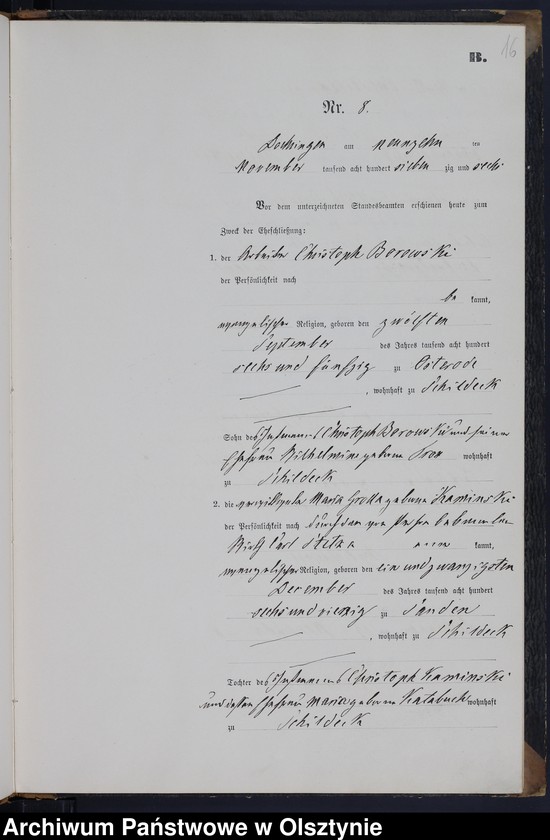 B. 16
Nr. 8.
am neunzehn ten
November tausend acht hundert sieben zig und sechs
Vor dem unterzeichneten Standesbeamten erschienen heute zum
Zweck der Eheschließung:
1. der Arbeiter Christoph Borowski
der Persönlichkeit nach
be kannt,
evangelischer Religion, geboren den zwölften
September des Jahres tausend acht hundert
sechs und fünfzig zu Osterode
, wohnhaft zu Schildeck
Sohn des Christoph Borowski und seiner
Ehefrau Wilhelmine geborene wohnhaft
zu Schildeck
2. die Maria geborene Kaminski
der Persönlichkeit nach durch den
Wirth Carl kannt,
evangelischer Religion, geboren den ein und zwanzigsten
December des Jahres tausend acht hundert
sechs und vierzig zu
, wohnhaft zu Schildeck
Tochter des Christoph Kaminski
und dessen Ehefrau Maria geborene wohnhaft
zu Schildeck
Archiwum Państwowe w Olsztynie